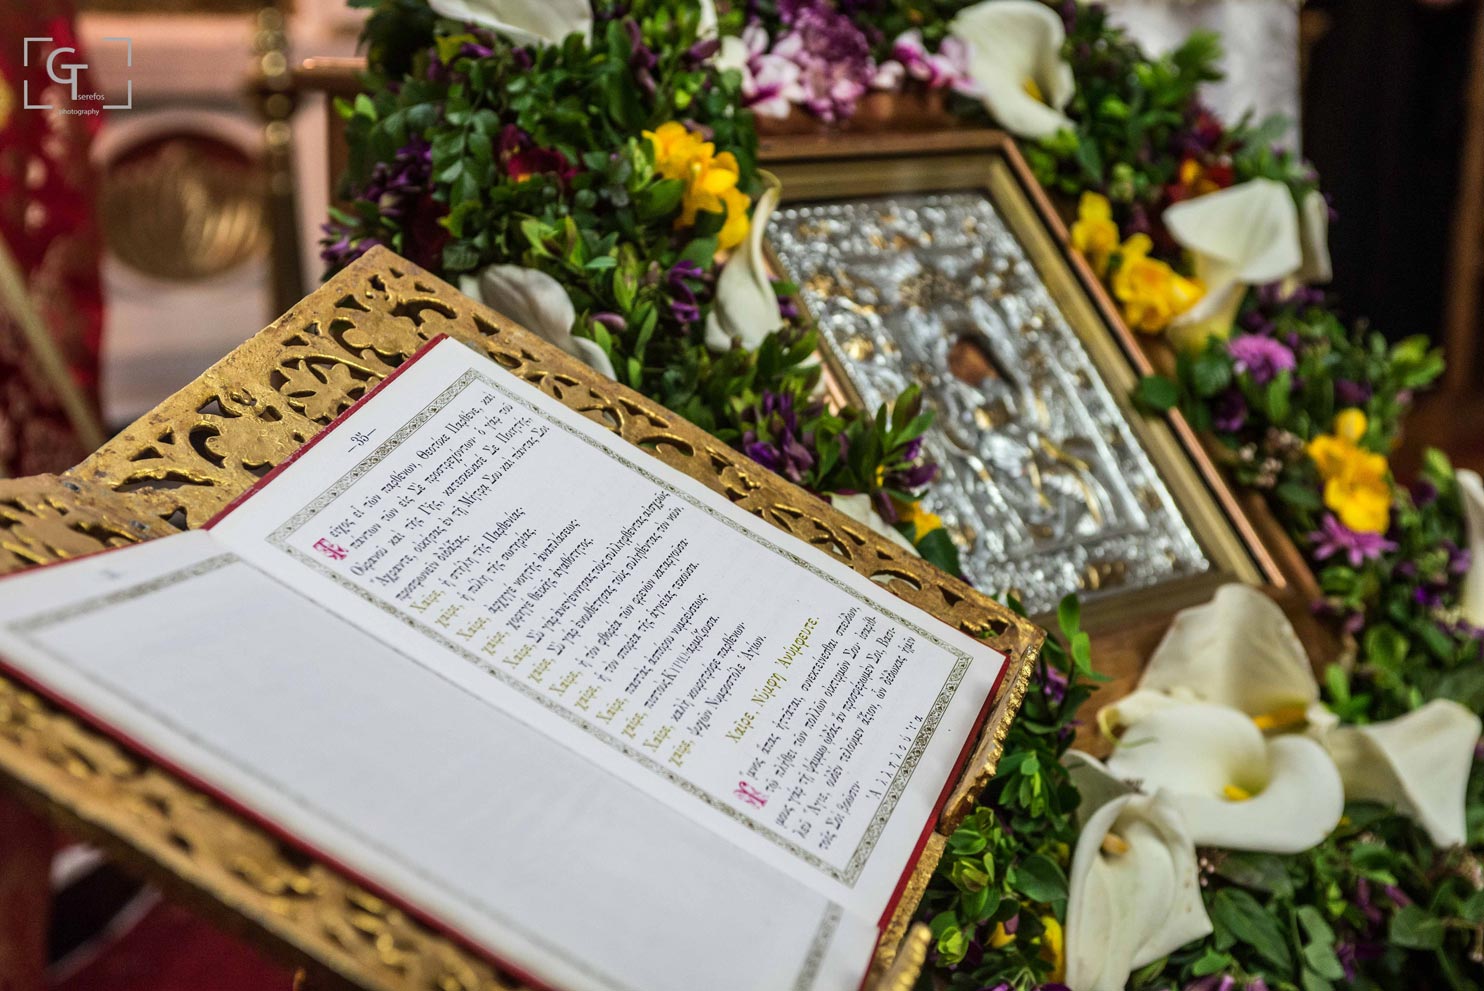 GT
serefos
photography
—35—
Τεῖχος εἶ τῶν παρθένων, Θεοτόκε Παρθένε, καὶ
πάντων τῶν εἰς Σὲ προστρεχόντων· ὁ γὰρ τοῦ
Οὐρανοῦ καὶ τῆς Γῆς, κατεσκεύασέ Σε Ποιητής,
Ἄχραντε, οἰκήσας ἐν τῇ Μήτρᾳ Σου καὶ πάντας Σοι
προσφωνεῖν διδάξας.
Χαῖρε, ἡ στήλη τῆς Παρθενίας·
χαῖρε, ἡ πύλη τῆς σωτηρίας.
Χαῖρε, ἀρχηγὲ νοητῆς ἀναπλάσεως·
χαῖρε, χορηγὲ θεϊκῆς ἀγαθότητος.
Χαῖρε, Σὺ γὰρ ἀνεγέννησας τοὺς συλληφθέντας αἰσχρῶς·
χαῖρε, Σὺ γὰρ ἐνουθέτησας τοὺς συληθέντας τὸν νοῦν.
Χαῖρε, ἡ τὸν φθορέα τῶν φρενῶν καταργοῦσα·
χαῖρε, ἡ τὸν σπορέα τῆς ἁγνείας τεκοῦσα.
Χαῖρε, παστὰς ἀσπόρου νυμφεύσεως·
χαῖρε, πιστοὺς Κυρίῳ ἁρμόζουσα.
Χαῖρε, καλὴ κουροτρόφε παρθένων·
χαῖρε, ψυχῶν Νυμφοστόλε Ἁγίων.
Χαῖρε, Νύμφη Ἀνύμφευτε.
Ὕμνος ἅπας ἡττᾶται, συνεκτείνεσθαι σπεύδων,
τῷ πλήθει τῶν πολλῶν οἰκτιρμῶν Σου· ἰσαρίθ-
μους γὰρ τῇ ψάμμῳ ᾠδὰς ἂν προσφέρωμέν Σοι, Βασι-
λεῦ Ἅγιε, οὐδὲν τελοῦμεν ἄξιον, ὧν δέδωκας ἡμῖν
τοῖς Σοὶ βοῶσιν·
Ἀλληλούϊα